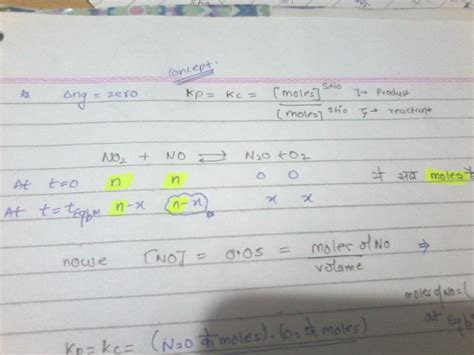 concept.
Δng = zero Kp = Kc = [moles] stio → Product
[moles] stio → reactant
NO₂ + NO ⇌ N₂O + O₂
At t=0 n n 0 0 ये सब moles
At t = tEqbm n-x n-x x x
nowe [NO] = 0.05 = moles of No / volume ⇒
moles of No = (
at Eqb
Kp = Kc = (N₂O के moles) · (O₂ के moles)